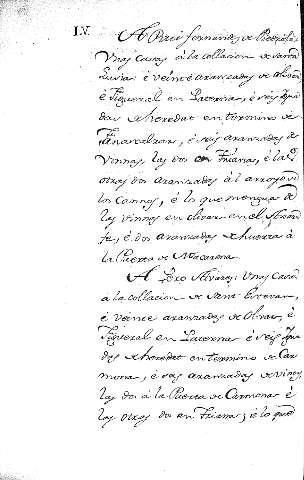 LV.
A Pero Fernandez de Pedrosa,
Unas casas à la collacion de santa
Lucia è veinte aranzadas de olivar
è Figueral en Lucenia, è seis Yuga
das de heredat en termino de
è seis aranzadas de
Vinnas, las dos en Triana, è las
otras dos aranzadas à el arroyo de
los Cannos, è lo que mengua de
las vinnas en olivar en el
è dos aranzadas de huerta à
la Puerta de Macarena.
A Pero Alvarez: Unas casas
à la collacion de Sant Estevan,
è veinte aranzadas de Olivar, è
Figueral en Lucenia è seis Yuga
das de heredat en termino de Car
mona, è seis aranzadas de vinnas
las dos à la Puerta de Carmona è
las otras dos en Triana, è lo que